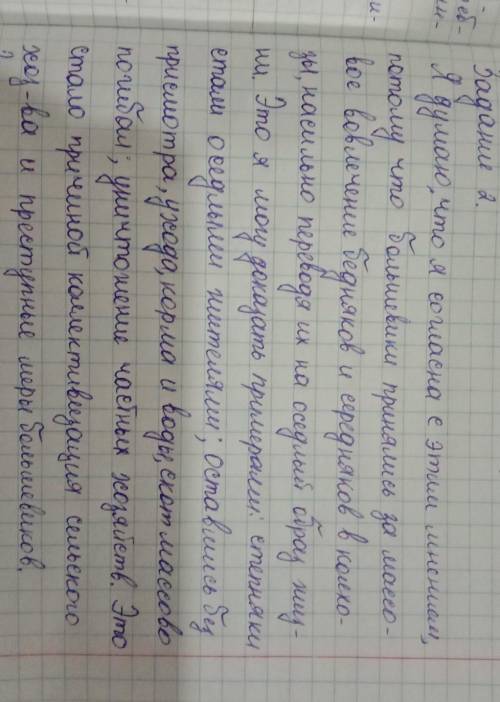 еб-
им-
и-
Задание 2.
Я думаю, что я согласна с этим мнением,
потому что большевики принялись за массо-
вое вовлечение бедняков и середняков в колхо-
зы, насильно переводя их на оседлый образ жиз-
ни. Это я могу доказать примерами: степняки
стали оседлыми жителями; оставшись без
присмотра, ухода, корма и воды, скот массово
погибал; уничтожение частных хозяйств. Это
стало причиной колективизация сельского
хоз-ва и преступные меры большевиков.